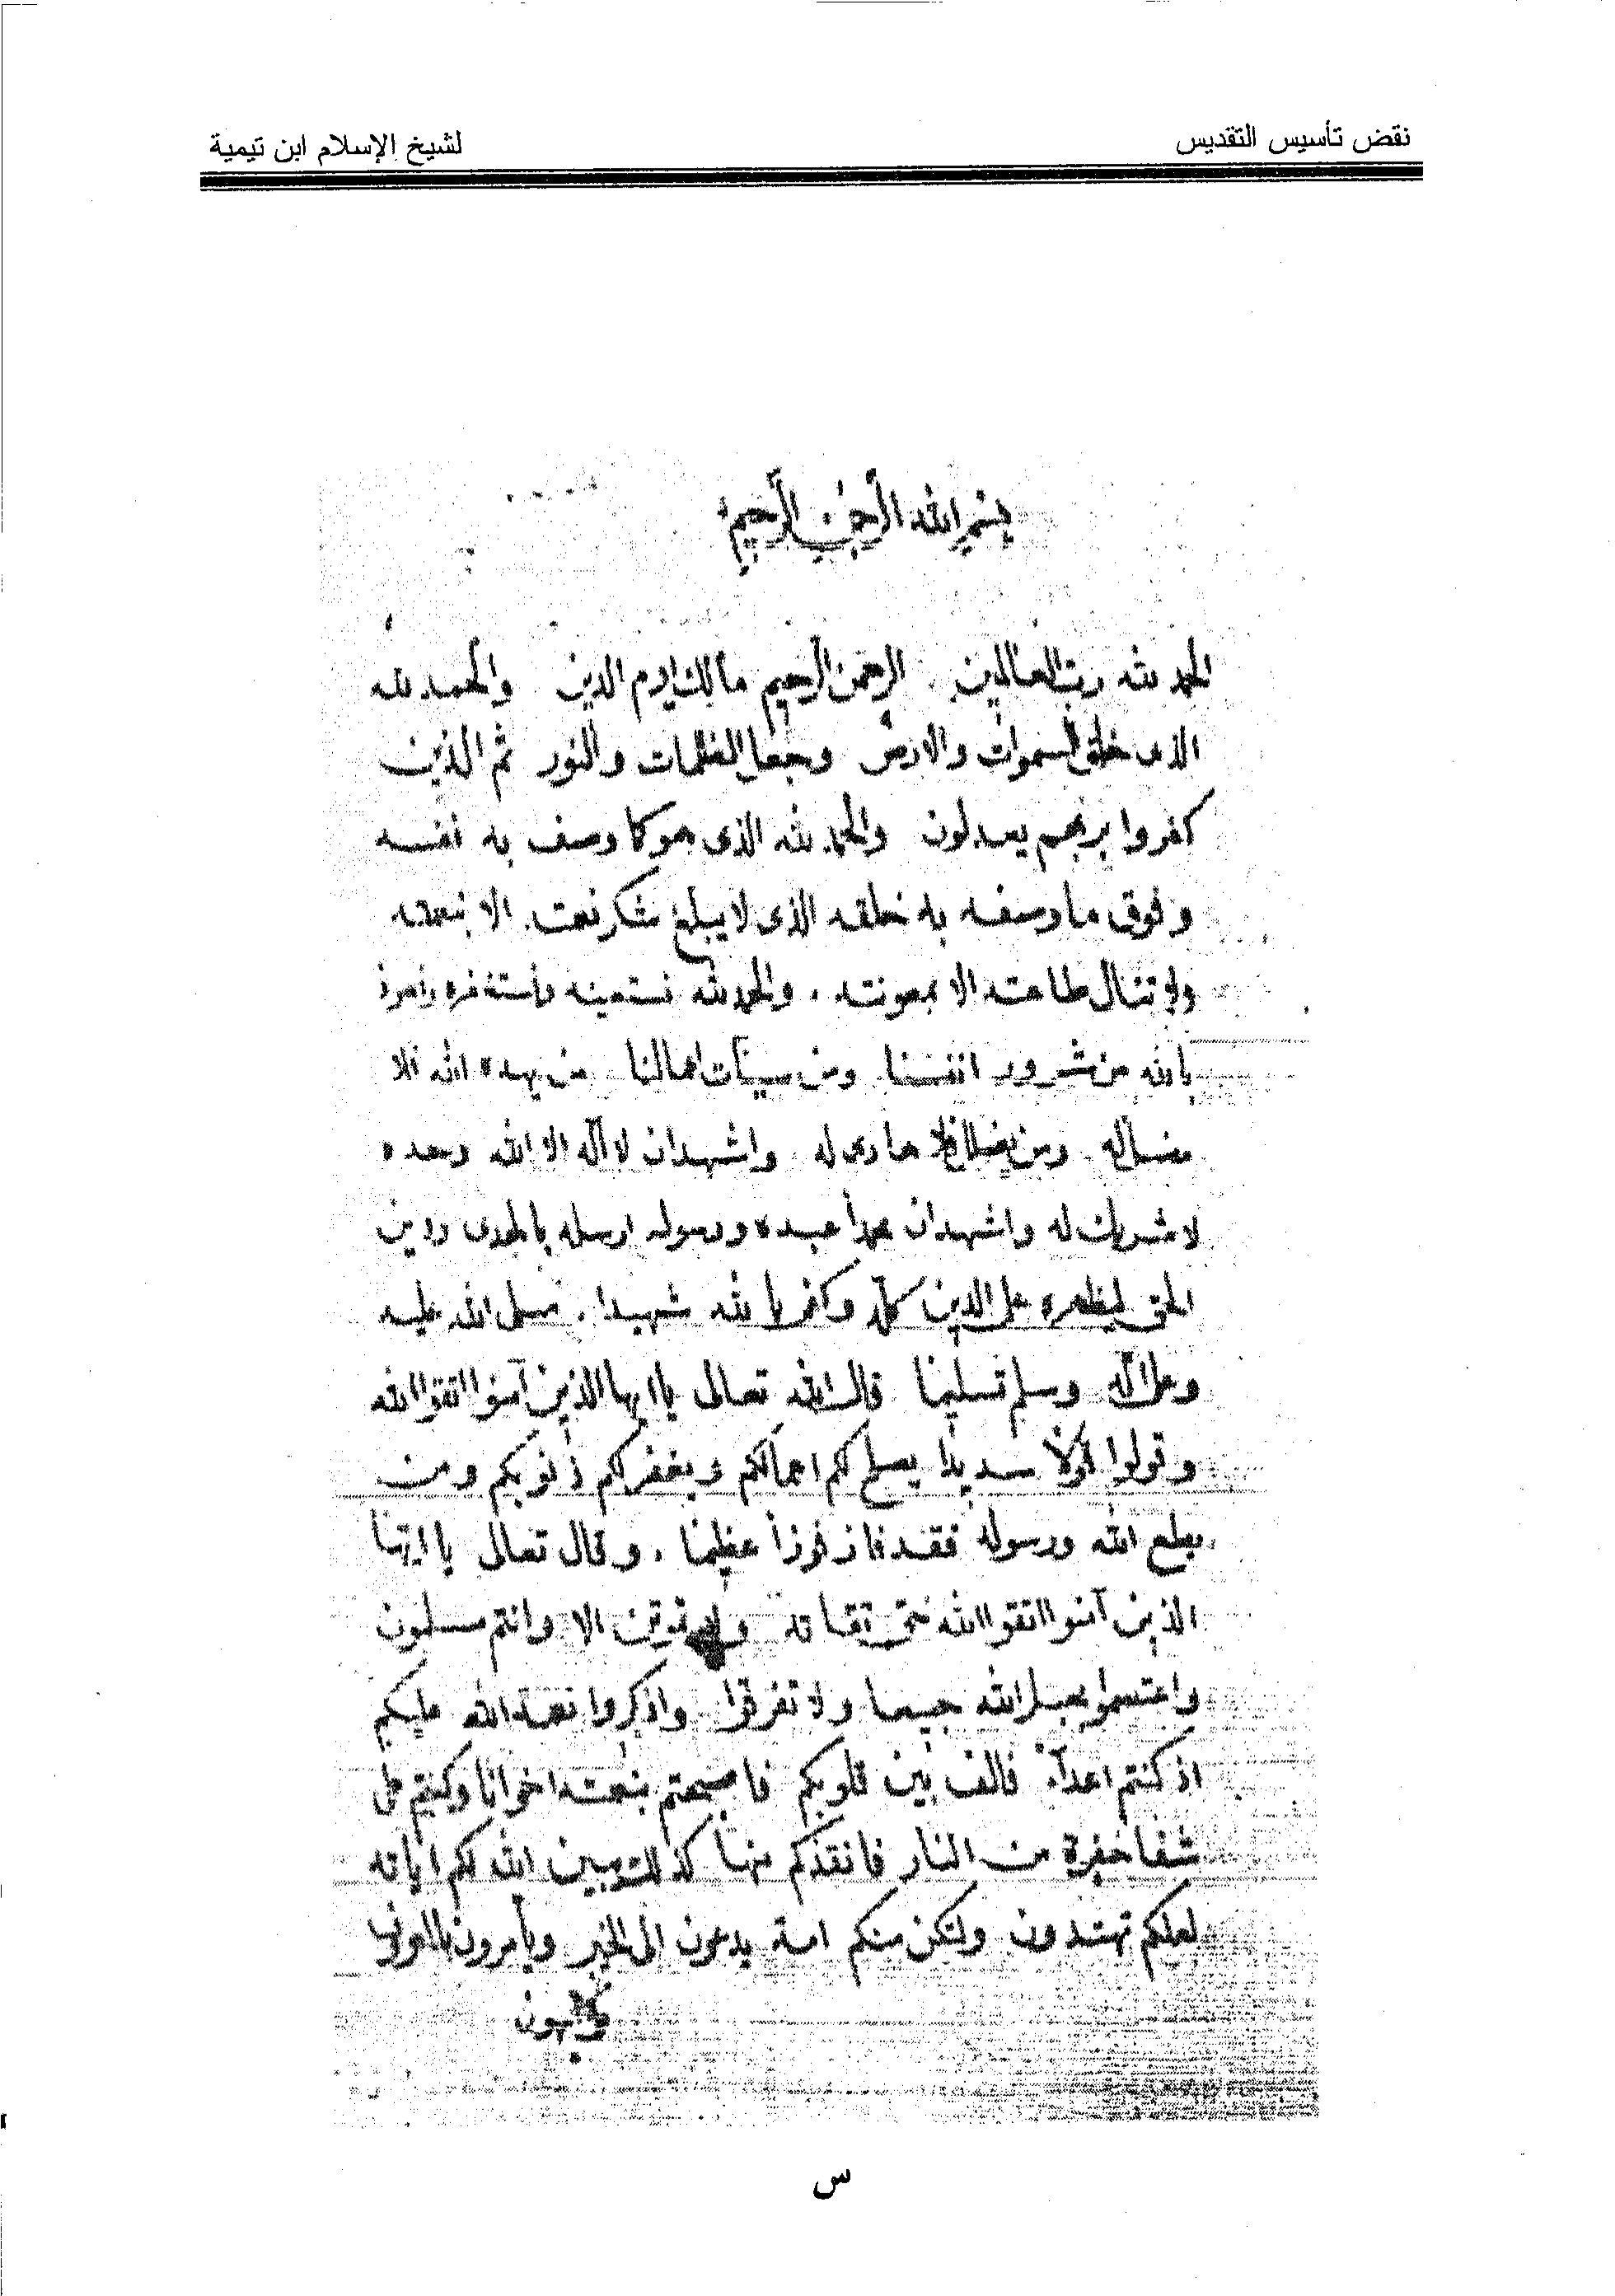 نقض تأسيس التقديس
لشيخ الإسلام ابن تيمية
بسم الله الرحمن الرحيم
الحمد لله رب العالمين الرحمن الرحيم مالك يوم الدين والحمد لله
الذى خلق السموات والارض وجعل الظلمات والنور ثم الذين
كفروا بربهم يعدلون والحمد لله الذى هو كما وصف به نفسه
وفوق ما وصفه به خلقه الذى لا يبلغ شكر نعمته الا بنعمته
ولا تنال طاعته الا بمعونته . والحمد لله نستعينه ونستغفره ونعوذ
بالله من شرور انفسنا ومن سيئات اعمالنا من يهده الله فلا
مضل له ومن يضلل فلا هادى له واشهد ان لا اله الا الله وحده
لا شريك له واشهد ان محمدا عبده ورسوله ارسله بالهدى ودين
الحق ليظهره على الدين كله وكفى بالله شهيدا . صلى الله عليه
وعلى آله وسلم تسليما قال الله تعالى يا ايها الذين آمنوا اتقوا الله
وقولوا قولا سديدا يصلح لكم اعمالكم ويغفر لكم ذنوبكم ومن
يطع الله ورسوله فقد فاز فوزا عظيما . وقال تعالى يا ايها
الذين آمنوا اتقوا الله حق تقاته ولا تموتن الا وانتم مسلمون
واعتصموا بحبل الله جميعا ولا تفرقوا واذكروا نعمة الله عليكم
اذ كنتم اعدآء فالف بين قلوبكم فاصبحتم بنعمته اخوانا وكنتم على
شفا حفرة من النار فانقذكم منها كذلك يبين الله لكم اياته
لعلكم تهتدون ولتكن منكم امة يدعون الى الخير ويأمرون بالمعروف
وينهون
س